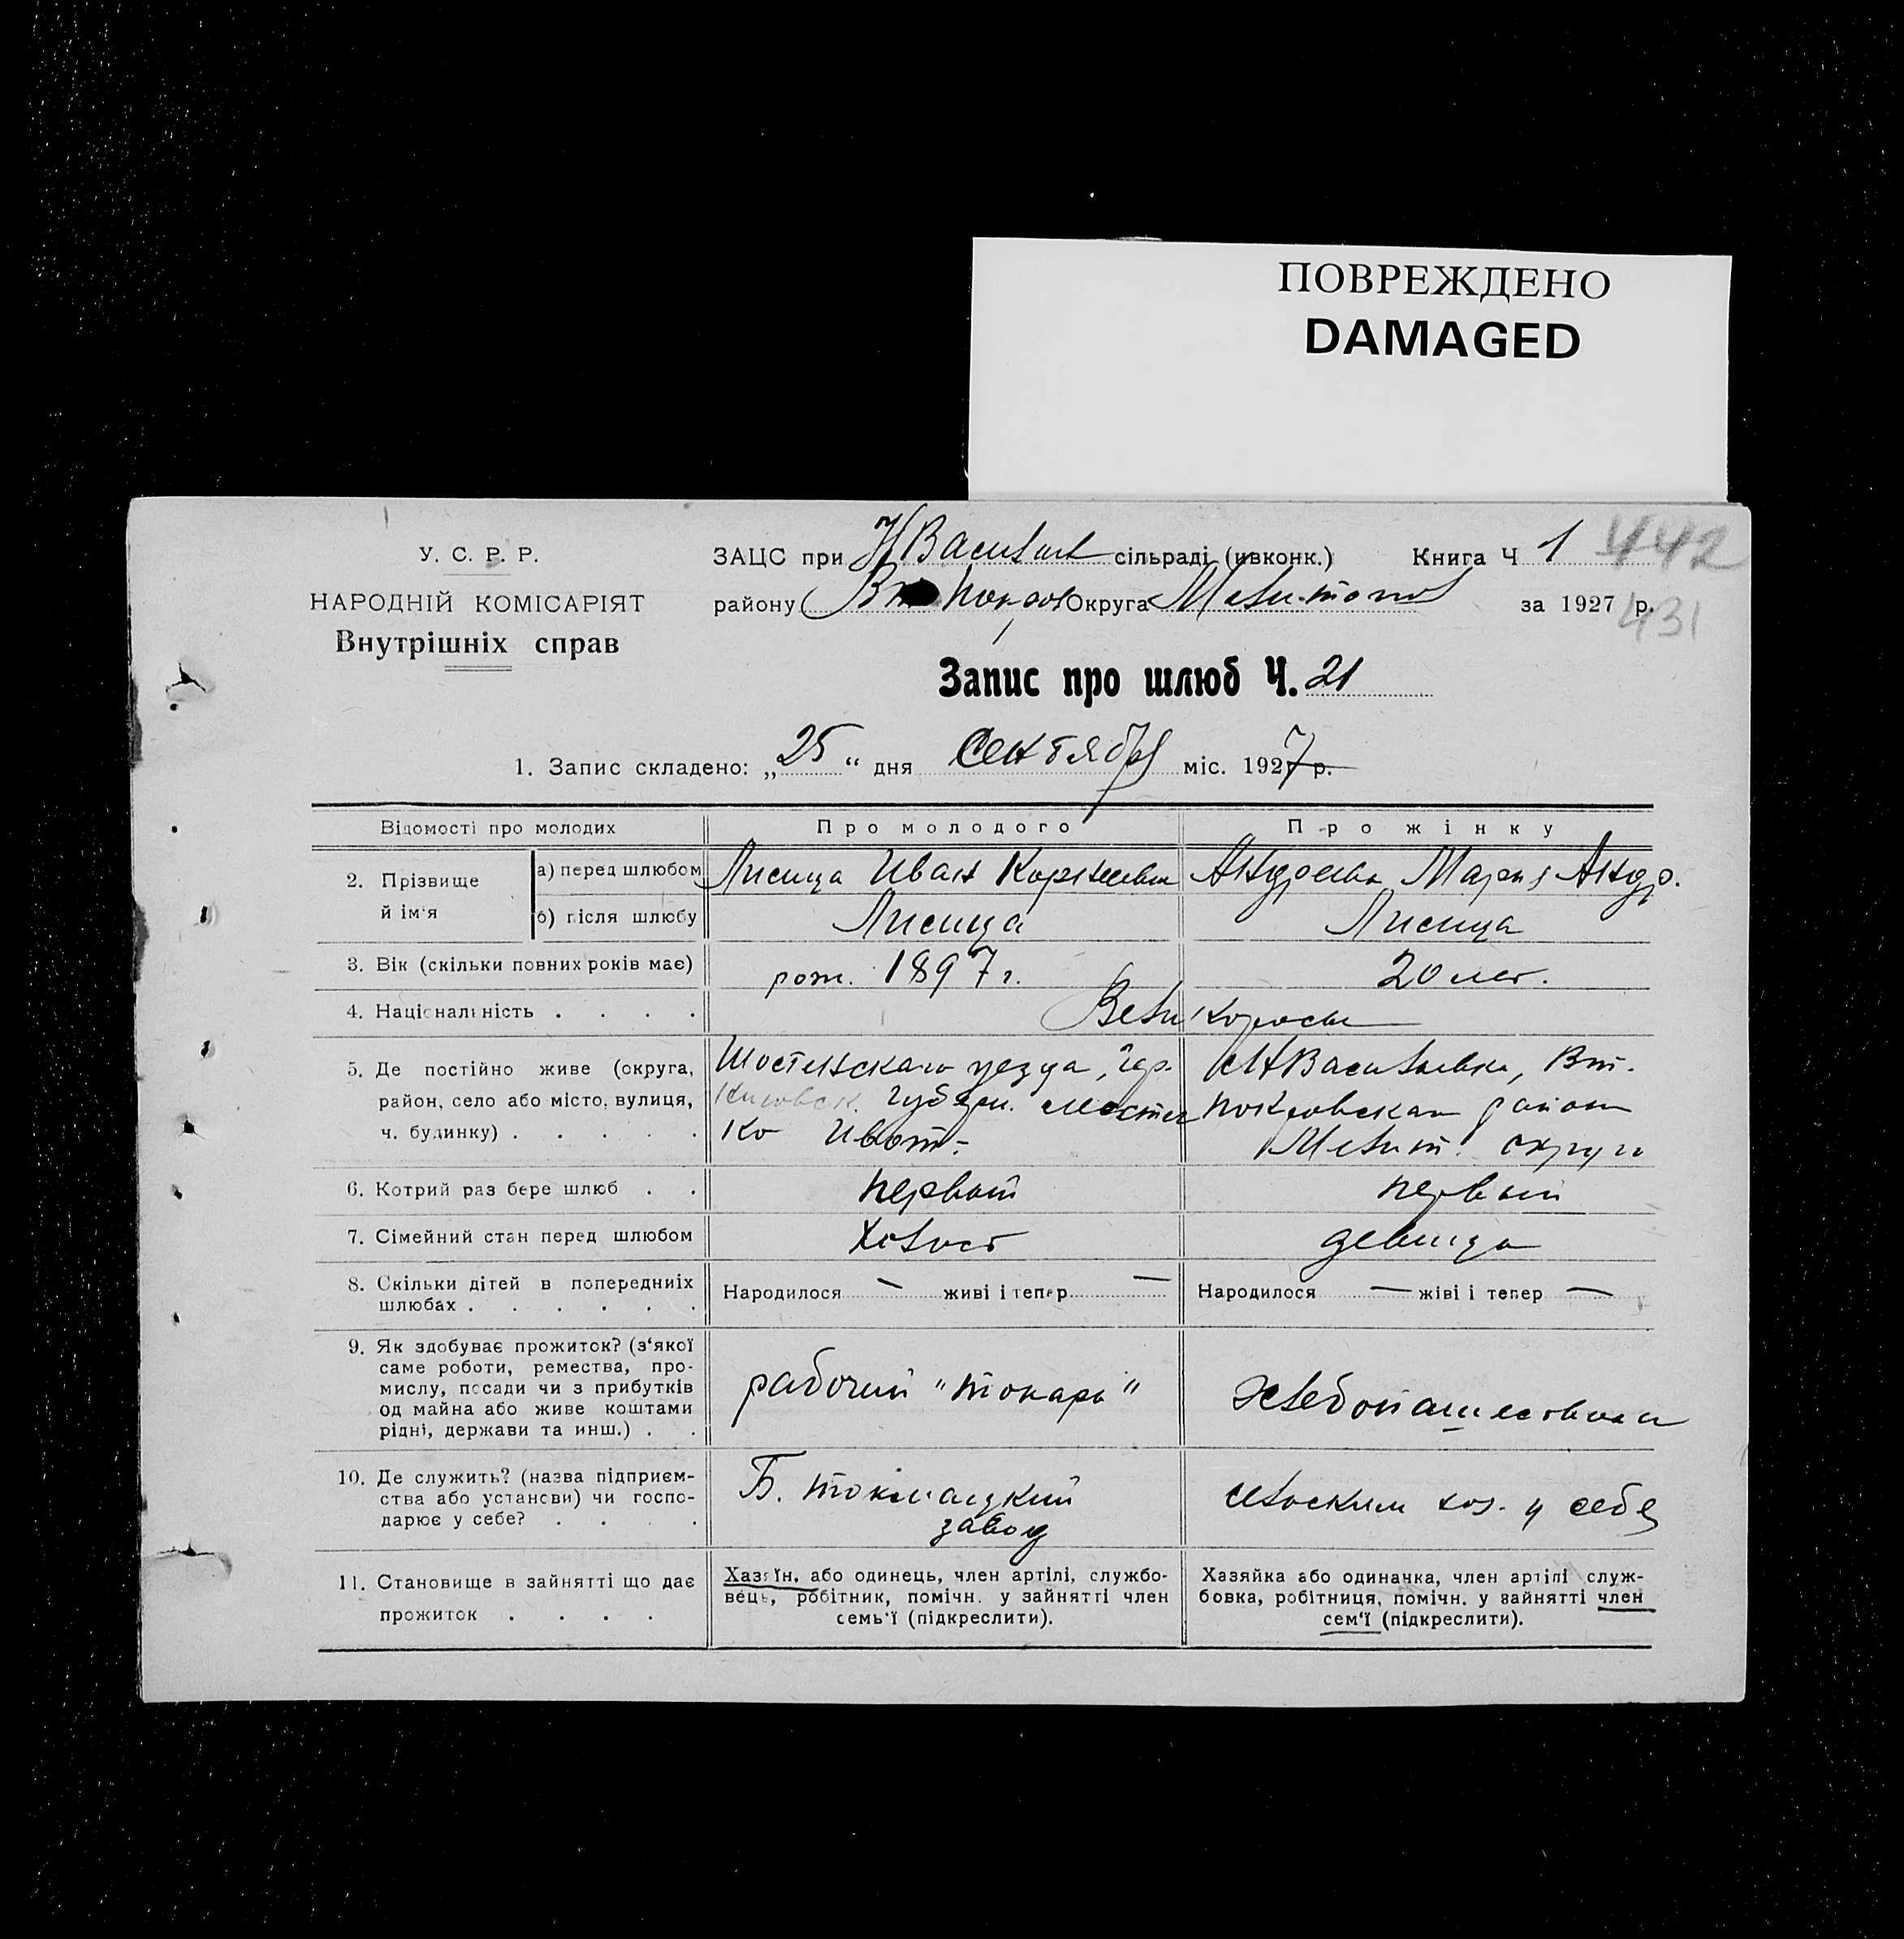 ПОВРЕЖДЕНО
DAMAGED
У. С. Р. Р.
НАРОДНІЙ КОМІСАРІЯТ
Внутрішніх справ
ЗАЦС при НВасильев сільраді (ивконк.) Книга Ч 1 442
району Вт Покров Округа Мелитопол за 1927 р. 431
Запис про шлюб Ч. 21
1. Запис складено: „25“ дня Сентября міс. 1927 р.
Відомості про молодих Про молодого Про жінку
2. Прізвище й ім'я
а) перед шлюбом Лисица Иван Корнеевич Андреева Мария Андр.
б) після шлюбу Лисица Лисица
3. Вік (скільки повних років має) рож. 1897 г. 20 лет.
4. Національність . . . . Великороссы
5. Де постійно живе (округа,
район, село або місто, вулиця,
ч. будинку) . . . . .
Шостенскаго уезда,
губерн. местеч
ко Ивот.
с НВасильевка, Вт.
Покровскаго района
Мелит. округа
6. Котрий раз бере шлюб . . первый первый
7. Сімейний стан перед шлюбом Холост девица
8. Скільки дітей в попередниіх
шлюбах . . . . . .
Народилося — живі і тепер —
Народилося — жіві і тепер —
9. Як здобуває прожиток? (з'якої
саме роботи, ремества, про-
мислу, посади чи з прибутків
од майна або живе коштами
рідні, держави та инш.) . .
рабочий "токарь"
хлебопашество
10. Де служить? (назва підприєм-
ства або установи) чи госпо-
дарює у себе? . . . .
Б. Токмацкий
завод
сельским хоз. у себя
11. Становище в зайнятті що дає
прожиток . . . .
Хазяїн, або одинець, член артілі, службо-
вець, робітник, помічн. у зайнятті член
семь'ї (підкреслити).
Хазяйка або одиначка, член артілі служ-
бовка, робітниця, помічн. у зайнятті член
сем'ї (підкреслити).